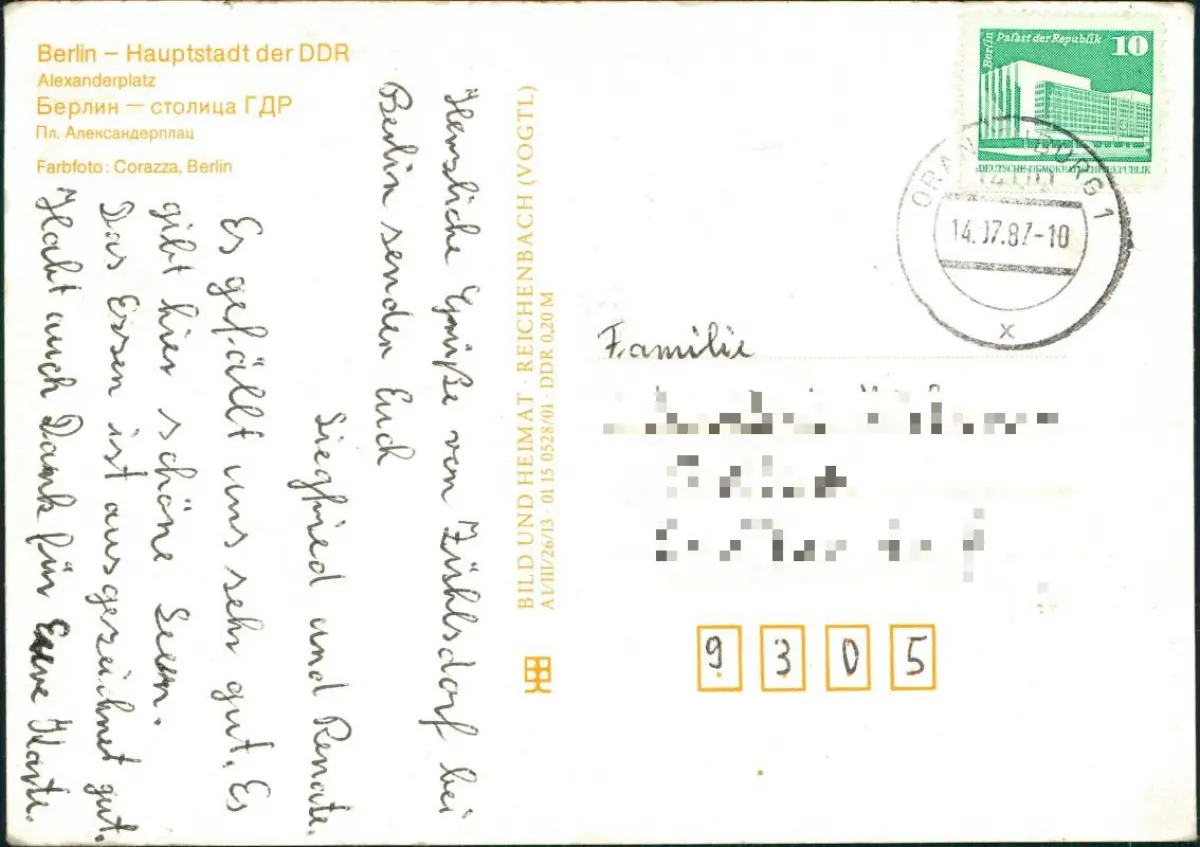 Berlin – Hauptstadt der DDR
Alexanderplatz
Берлин — столица ГДР
Пл. Александерплац
Farbfoto: Corazza, Berlin
Herzliche Grüße vom Zühlsdorf bei
Berlin senden Euch
Siegfried und Renate.
Es gefällt uns sehr gut. Es
gibt hier schöne Seen.
Das Essen ist ausgezeichnet gut.
Habt auch Dank für Eure Karte.
BILD UND HEIMAT · REICHENBACH (VOGTL)
A1/III/26/13 · 01 15 0528/01 · DDR 0,20 M
Berlin Palast der Republik 10
DEUTSCHE DEMOKRATISCHE REPUBLIK
ORANIENBURG 1
1400
14.07.87-10
X
Familie
9305